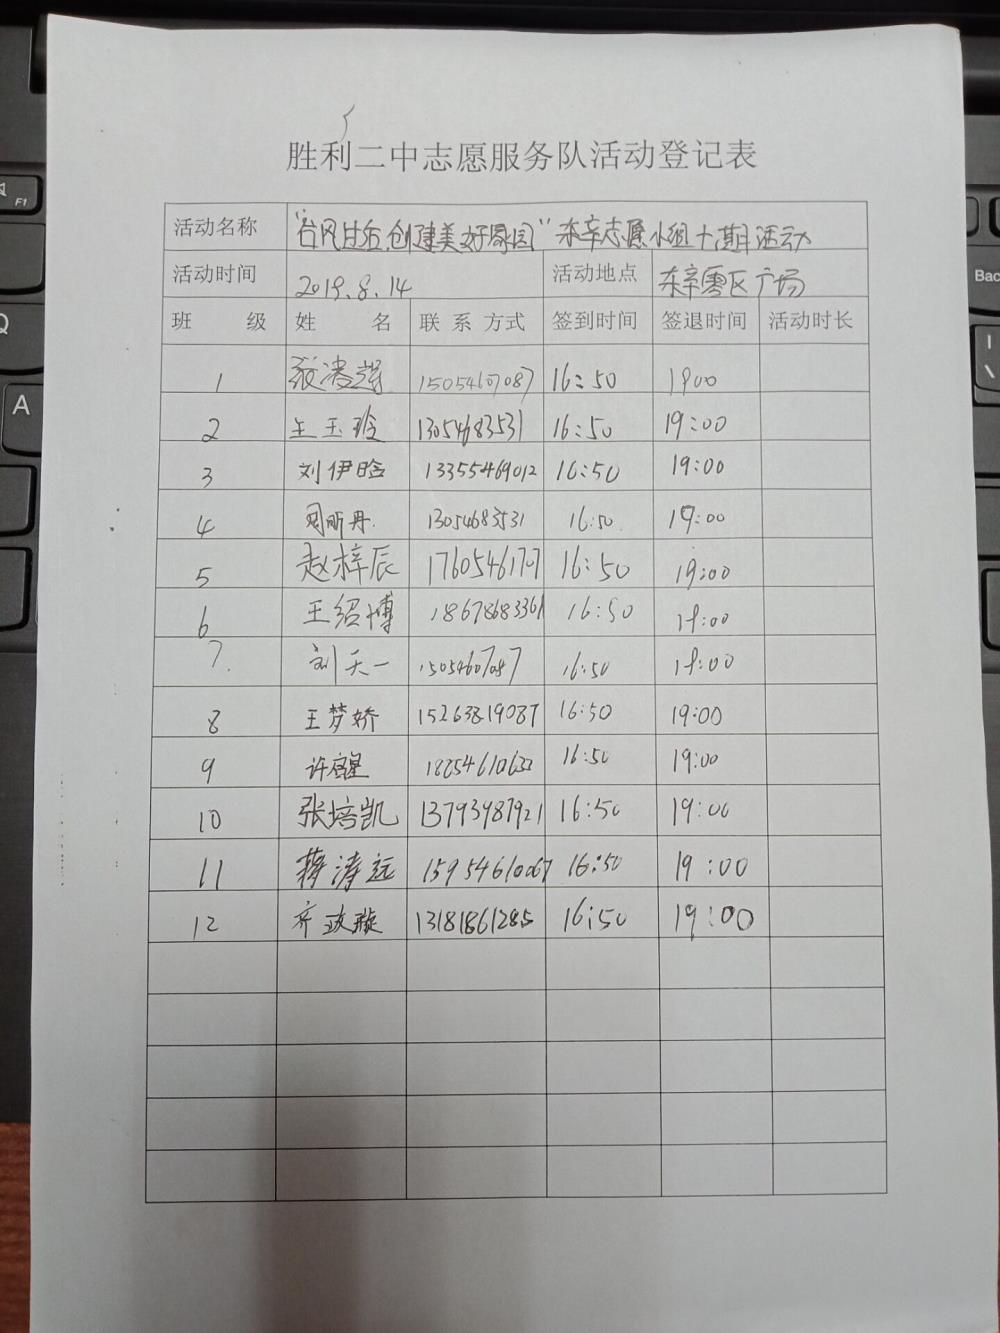 胜利二中志愿服务队活动登记表
活动名称 "台风过后,创建美好家园"东辛志愿小组十期活动
活动时间 2019.8.14 活动地点 东辛零区广场
班 级 姓 名 联系方式 签到时间 签退时间 活动时长
1 15054607087 16:50 19:00
2 王玉玲 13054683531 16:50 19:00
3 刘伊晗 13355469012 16:50 19:00
4 周昕丹 13054683531 16:50 19:00
5 赵梓辰 1760546170 16:50 19:00
6 王绍博 18678683361 16:50 19:00
7 刘天一 15054607087 16:50 19:00
8 王梦娇 15263819087 16:50 19:00
9 许启星 16:50 19:00
10 张培凯 13793987921 16:50 19:00
11 蒋涛远 15954610067 16:50 19:00
12 齐玫璇 13181861285 16:50 19:00